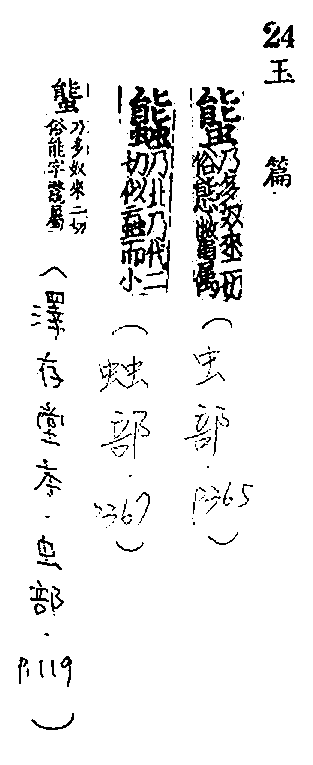 24
玉篇
䘅乃多奴來二切
俗能鼈屬
(虫部.P365)
乃北乃代二
切似䖵而小
(䖵部.P367)
䘅乃多奴來二切
俗能字鼈屬
(澤存堂本.虫部.P.119)